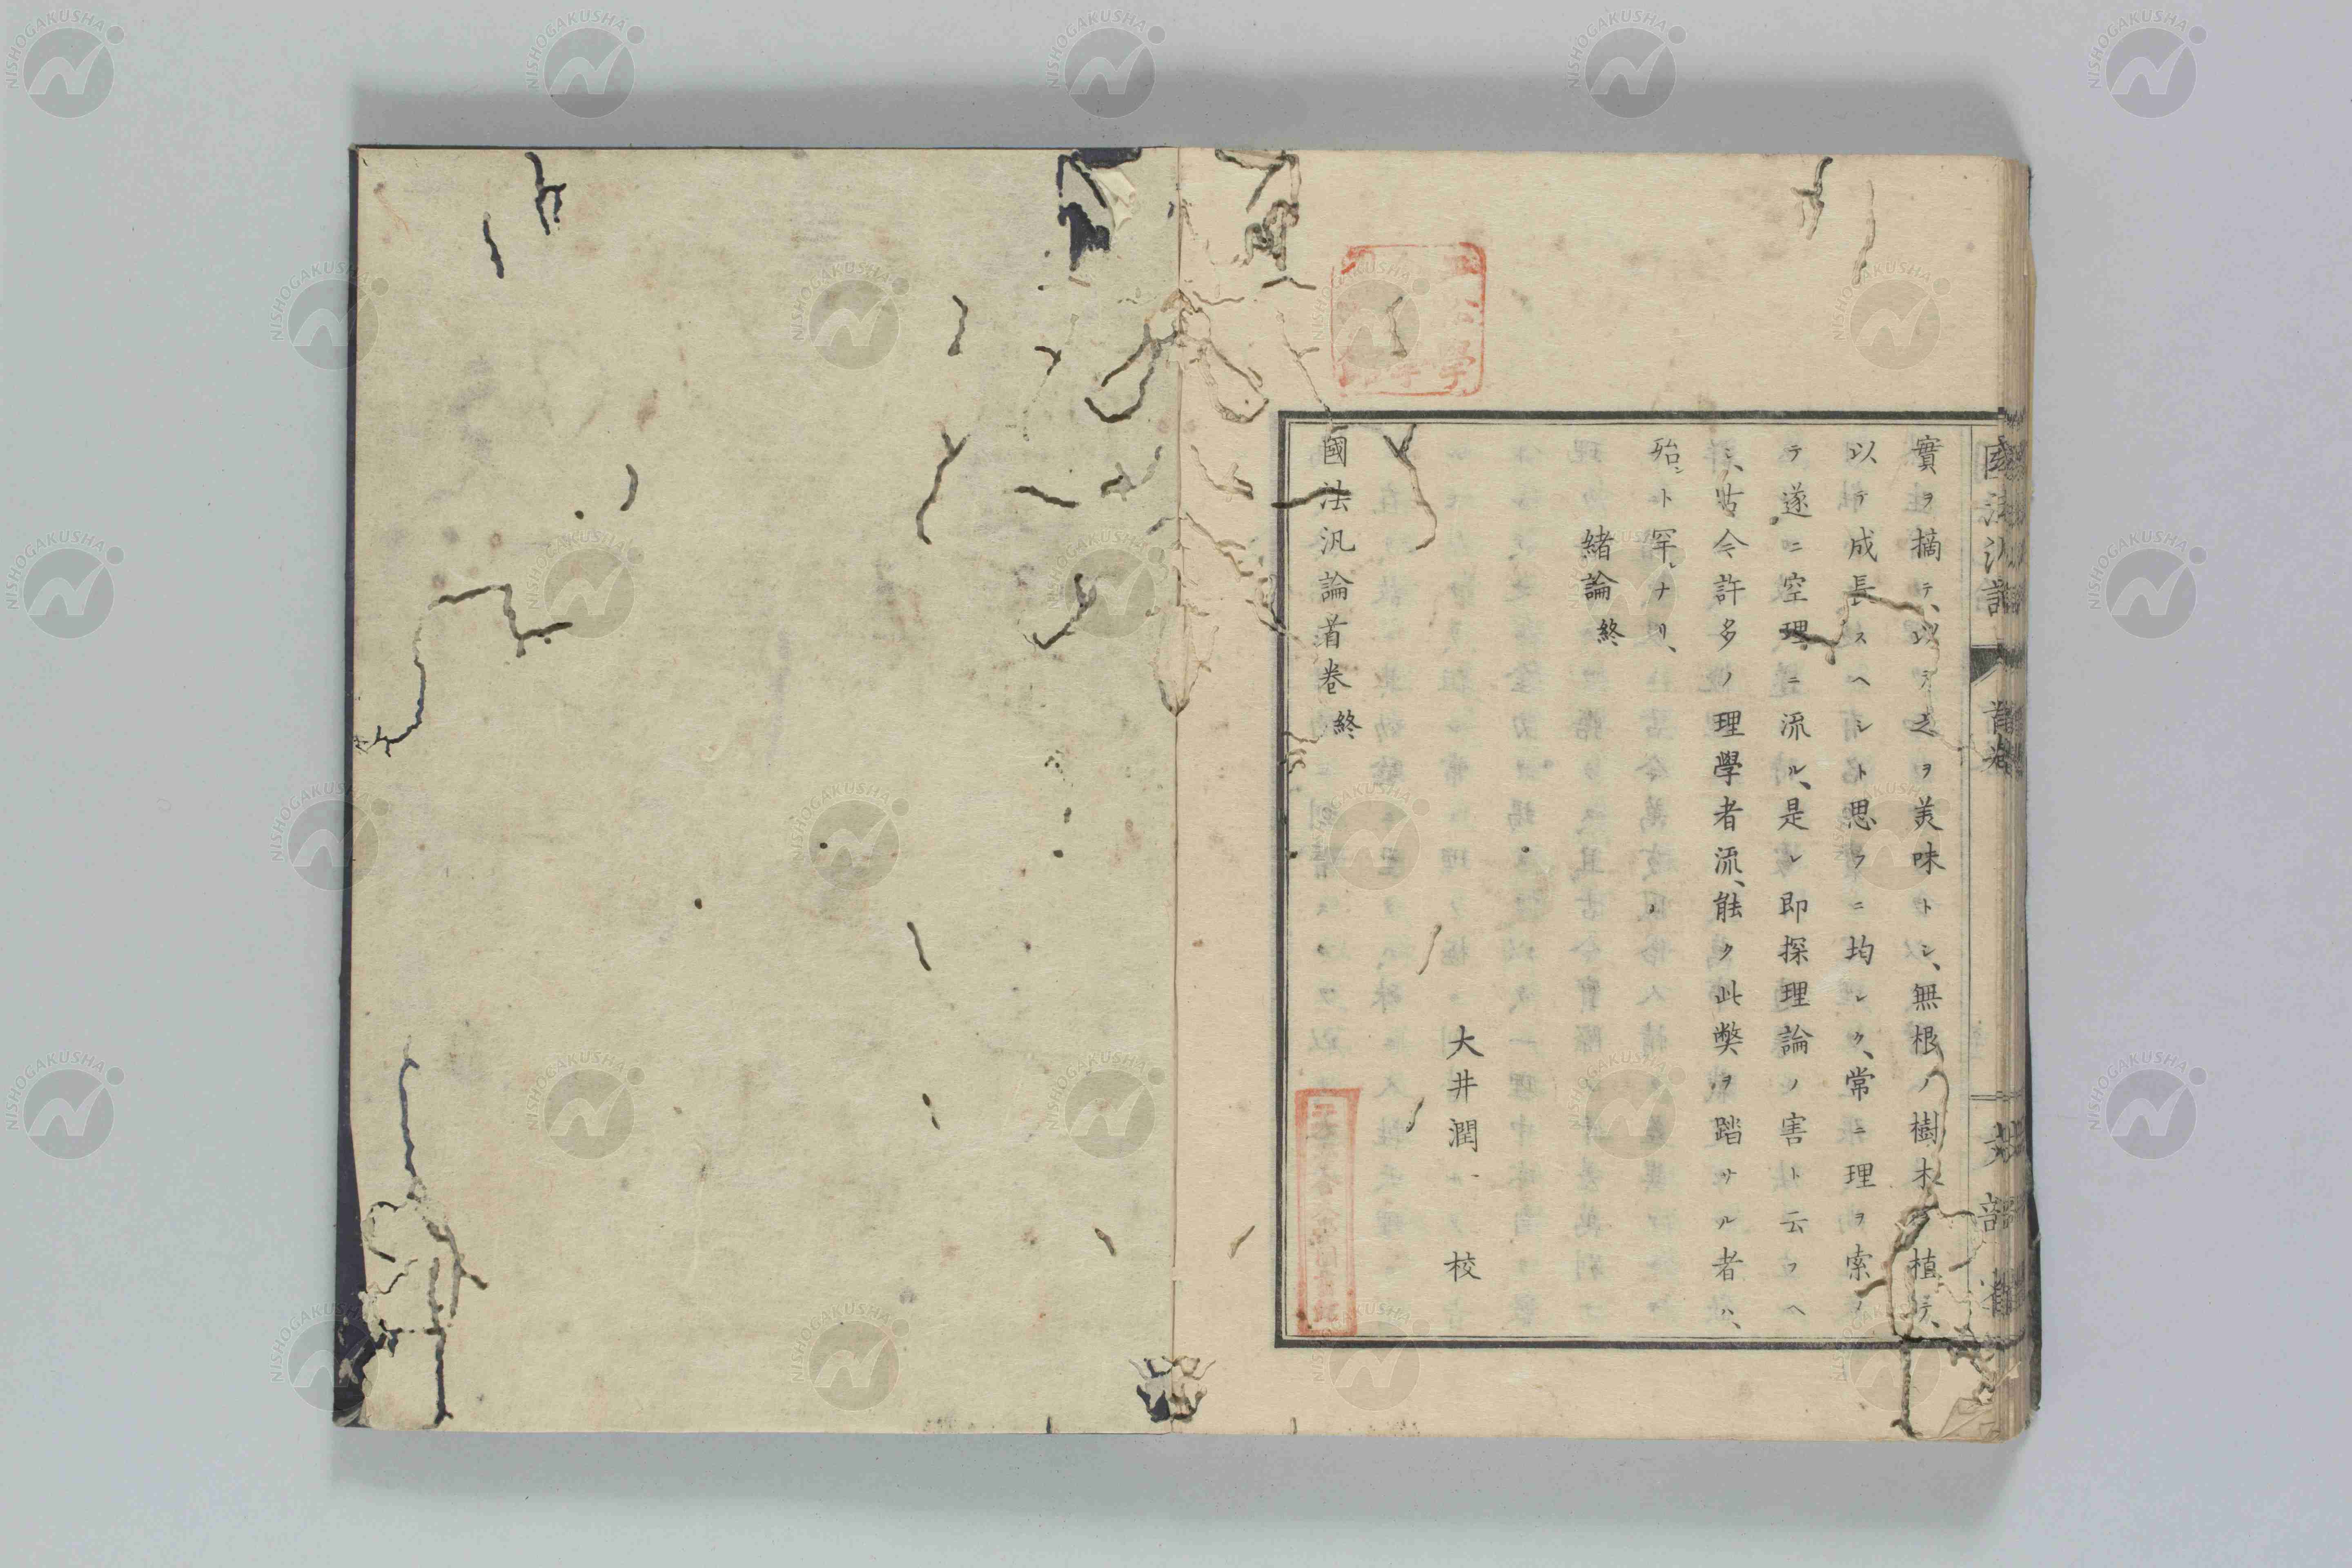 實ヲ摘テ、以テ之ヲ美味トシ、無根ノ樹木ヲ植テ、
以テ成長スヘシト思フニ均シク、常ニ理ヲ索ノ
テ遂ニ空理ニ流ル、是レ即探理論ノ害ト云フヘ
シ、古今許多ノ理學者流、能ク此弊ヲ踏サル者ハ、
殆ント罕ナリ、
緒論終
大井潤一校
國法汎論首卷終
首卷
NISHOGAKUSHA